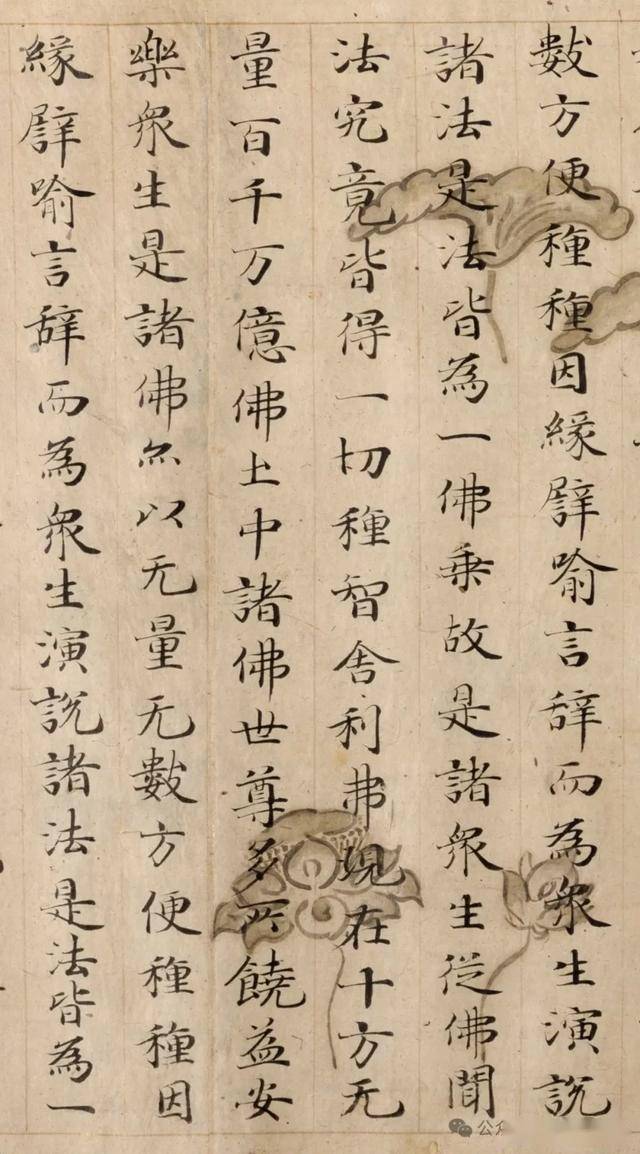 數方便種種因緣譬喻言辭而為衆生演說
諸法是法皆為一佛乗故是諸衆生從佛聞
法究竟皆得一切種智舍利弗現在十方无
量百千万億佛土中諸佛世尊多所饒益安
樂衆生是諸佛亦以无量无數方便種種因
緣譬喻言辭而為衆生演說諸法是法皆為一
公众